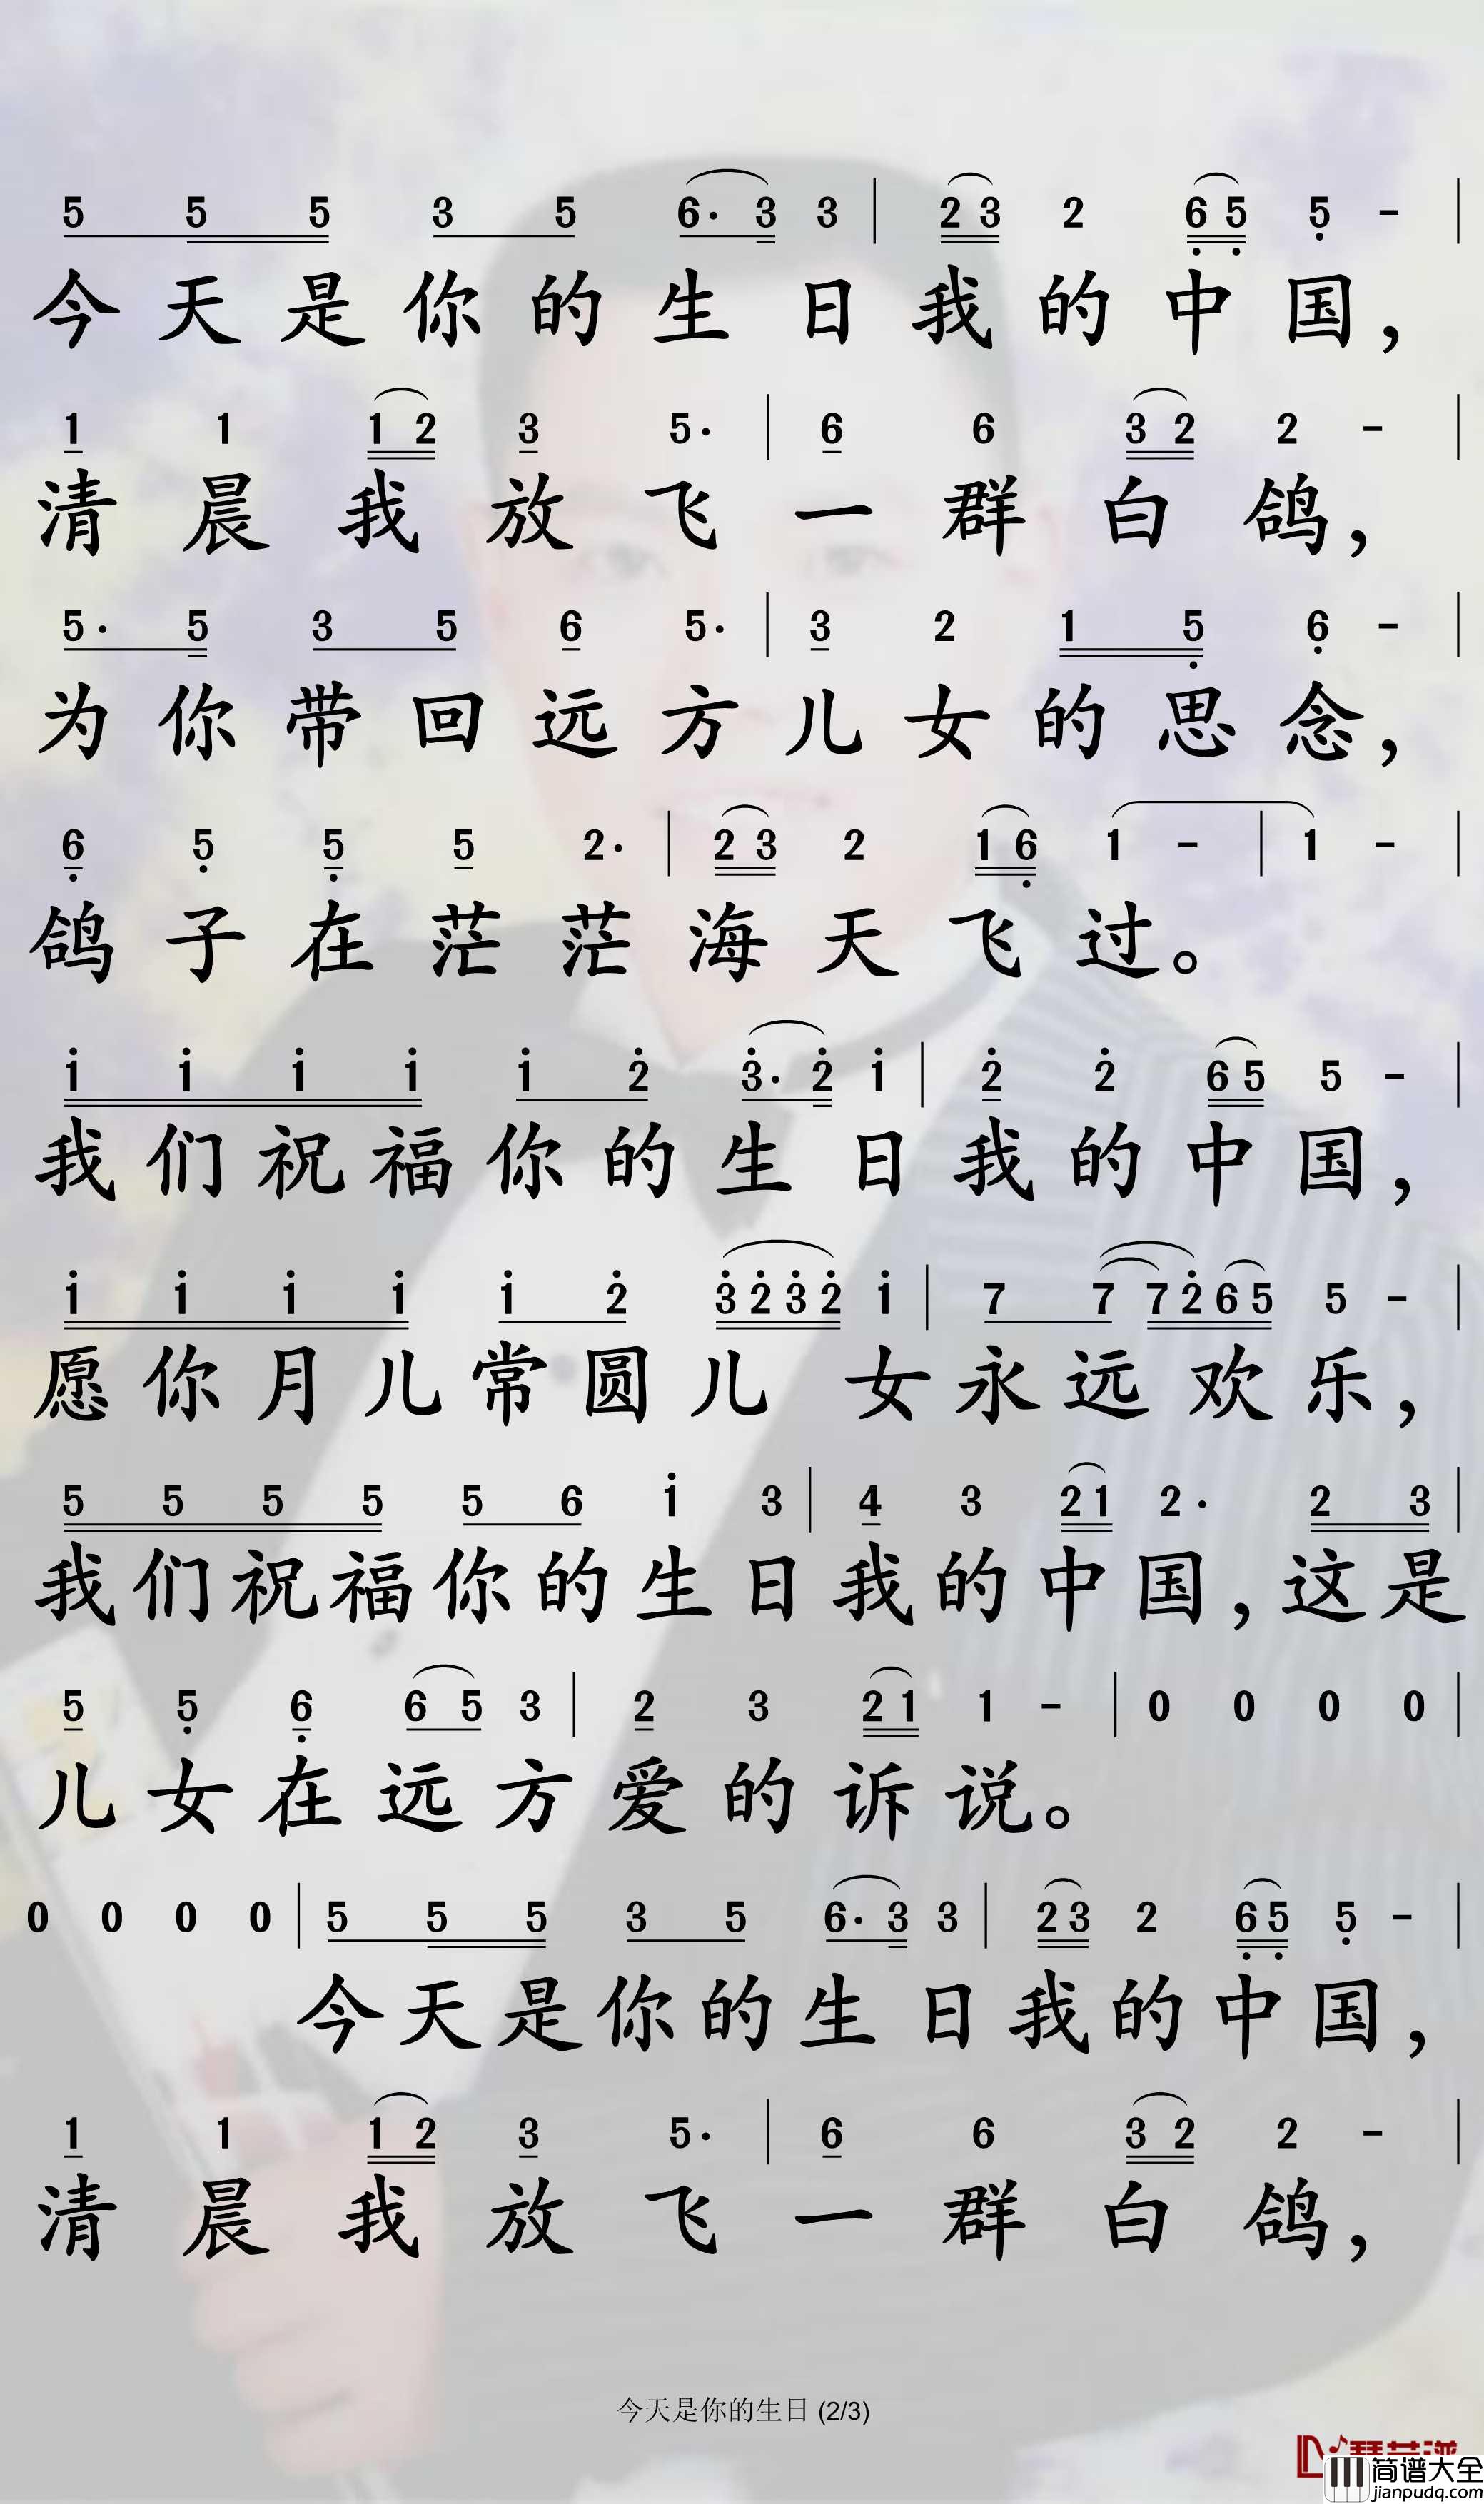 5 5 5 3 5 6· 3 3 | 2 3 2 6 5 5 - |
今天是你的生日我的中国，
1 1 1 2 3 5· | 6 6 3 2 2 - |
清晨我放飞一群白鸽，
5· 5 3 5 6 5· | 3 2 1 5 6 - |
为你带回远方儿女的思念，
6 5 5 5 2· | 2 3 2 1 6 1 - | 1 - |
鸽子在茫茫海天飞过。
1 1 1 1 1 2 3· 2 1 | 2 2 6 5 5 - |
我们祝福你的生日我的中国，
1 1 1 1 1 2 3 2 3 2 1 | 7 7 7 2 6 5 5 - |
愿你月儿常圆儿 女永远欢乐，
5 5 5 5 5 6 1 3 | 4 3 2 1 2· 2 3 |
我们祝福你的生日我的中国，这是
5 5 6 6 5 3 | 2 3 2 1 1 - | 0 0 0 0 |
儿女在远方爱的诉说。
0 0 0 0 | 5 5 5 3 5 6· 3 3 | 2 3 2 6 5 5 - |
今天是你的生日我的中国，
1 1 1 2 3 5· | 6 6 3 2 2 - |
清晨我放飞一群白鸽，
今天是你的生日 (2/3)
简谱大全
jianpudq.com